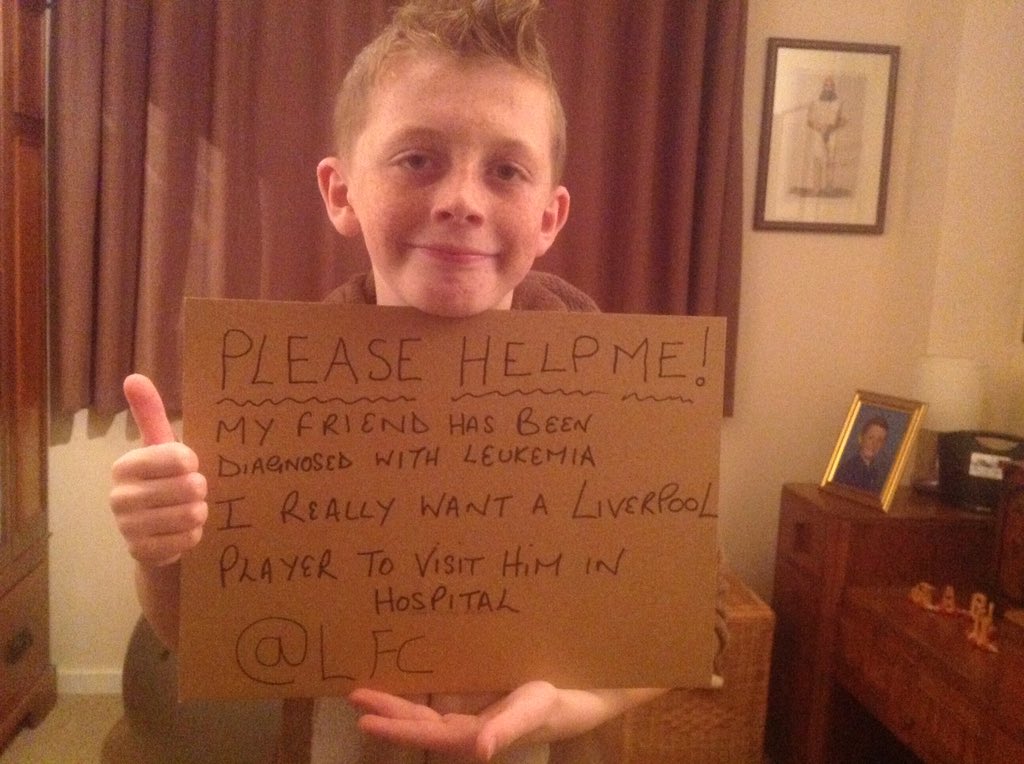 PLEASE HELP ME!
MY FRIEND HAS BEEN
DIAGNOSED WITH LEUKEMIA
I REALLY WANT A LIVERPOOL
PLAYER TO VISIT HIM IN
HOSPITAL
@LFC